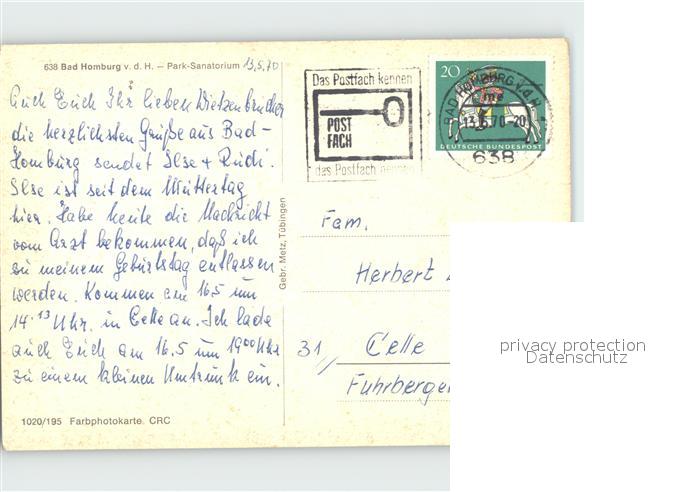 638 Bad Homburg v. d. H. – Park-Sanatorium 13.5.70
Auch Euch Ihr lieben Wietzenbrucher
die herzlichsten Grüße aus Bad-
Homburg sendet Ilse + Rudi.
Ilse ist seit dem Muttertag
hier. Habe heute die Nachricht
vom Arzt bekommen, daß ich
zu meinem Geburtstag entlassen
werden. Kommen am 16.5 um
14.13 Uhr. in Celle an. Ich lade
auch Euch am 16.5 um 1900 Uhr
zu einem kleinen Umtrunk ein.
1020/195 Farbphotokarte. CRC
Gebr. Metz, Tübingen
Das Postfach kennen
POST
FACH
das Postfach nennen
20
DEUTSCHE BUNDESPOST
BAD HOMBURG V.D.H.
13.5.70-20
638
Fam.
Herbert
31 Celle
Fuhrberger
privacy protection
Datenschutz